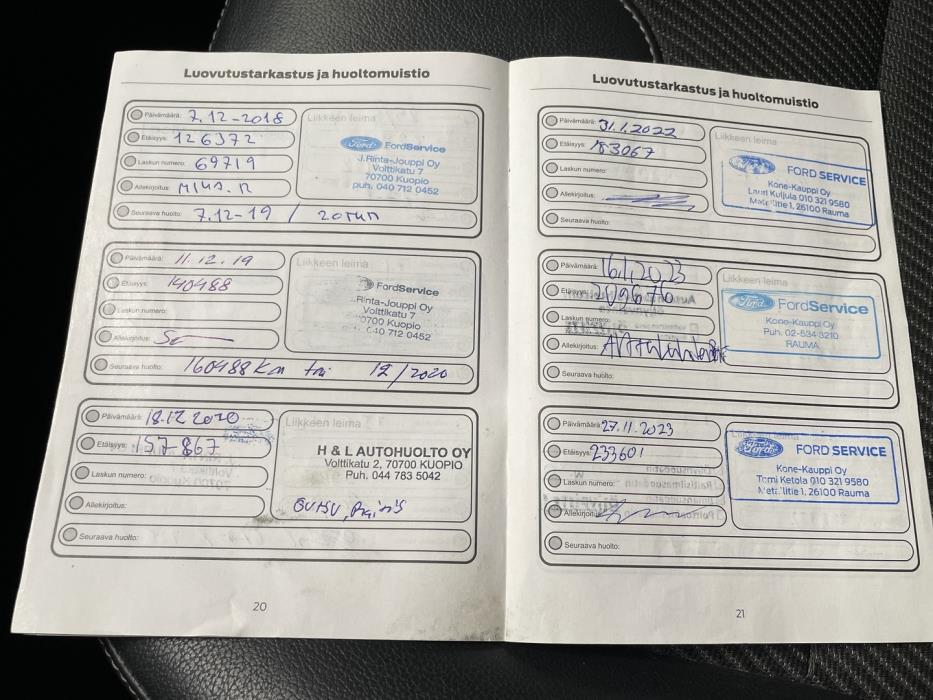 Luovutustarkastus ja huoltomuistio
Päivämäärä: 7.12-2018
Etäisyys: 126372
Laskun numero: 69719
Allekirjoitus: MIKA. R
Seuraava huolto: 7.12-19 / 20TKM
Liikkeen leima
Ford FordService
J.Rinta-Jouppi Oy
Volttikatu 7
70700 Kuopio
puh. 040 712 0452
Päivämäärä: 11.12.19
Etäisyys: 140488
Laskun numero:
Allekirjoitus:
Seuraava huolto: 160488 km tai 12/2020
Liikkeen leima
FordService
Rinta-Jouppi Oy
Volttikatu 7
70700 Kuopio
040 712 0452
Päivämäärä: 18.12 2020
Etäisyys: 157867
Laskun numero:
Allekirjoitus:
Seuraava huolto:
Liikkeen leima
H & L AUTOHUOLTO OY
Volttikatu 2, 70700 KUOPIO
Puh. 044 783 5042
20
Luovutustarkastus ja huoltomuistio
Päivämäärä: 31.1.2022
Etäisyys: 183067
Laskun numero:
Allekirjoitus:
Seuraava huolto:
Liikkeen leima
Ford FORD SERVICE
Kone-Kauppi Oy
Lauri Kuljula 010 321 9580
Metallitie 1, 26100 Rauma
Päivämäärä: 16.1.2023
Etäisyys: 209676
Laskun numero:
Allekirjoitus:
Seuraava huolto:
Liikkeen leima
Ford FordService
Kone-Kauppi Oy
Puh. 02-534 3210
RAUMA
Päivämäärä: 27.11.2023
Etäisyys: 233601
Laskun numero:
Allekirjoitus:
Seuraava huolto:
Liikkeen leima
Ford FORD SERVICE
Kone-Kauppi Oy
Tomi Ketola 010 321 9580
Metallitie 1, 26100 Rauma
21